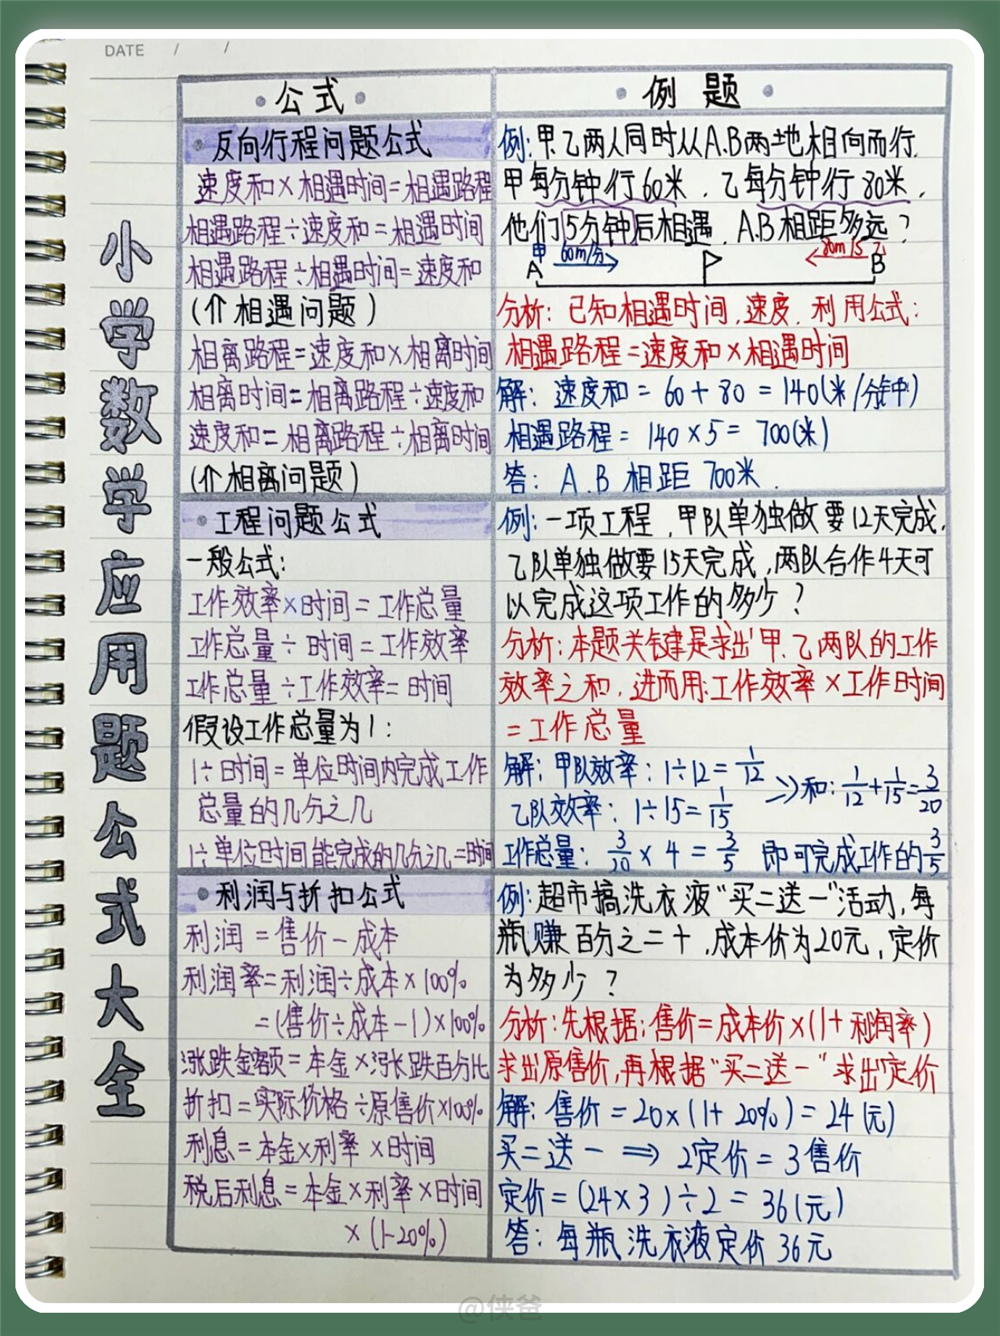 DATE / /
小学数学应用题公式大全
公式
反向行程问题公式
速度和×相遇时间=相遇路程
相遇路程÷速度和=相遇时间
相遇路程÷相遇时间=速度和
(个相遇问题)
相离路程=速度和×相离时间
相离时间=相离路程÷速度和
速度和=相离路程÷相离时间
(个相离问题)
工程问题公式
一般公式:
工作效率×时间=工作总量
工作总量÷时间=工作效率
工作总量÷工作效率=时间
假设工作总量为1:
1÷时间=单位时间内完成工作
总量的几分之几
1÷单位时间能完成的几分之几=时间
利润与折扣公式
利润=售价-成本
利润率=利润÷成本×100%
=(售价÷成本-1)×100%
涨跌金额=本金×涨跌百分比
折扣=实际价格÷原售价×100%
利息=本金×利率×时间
税后利息=本金×利率×时间
×(1-20%)
例题
例:甲、乙两人同时从A.B两地相向而行.
甲每分钟行60米.乙每分钟行80米,
他们5分钟后相遇.A.B相距多远?
甲 60m/分 80m/5 乙
A B
分析:已知相遇时间,速度.利用公式:
相遇路程=速度和×相遇时间
解:速度和=60+80=140(米/分钟)
相遇路程=140×5=700(米)
答:A.B相距700米.
例:一项工程,甲队单独做要12天完成,
乙队单独做要15天完成,两队合作4天可
以完成这项工作的多少?
分析:本题关键是求出甲、乙两队的工作
效率之和,进而用:工作效率×工作时间
=工作总量
解:甲队效率:1÷12=1/12 >>和:1/12+1/15=3/20
乙队效率:1÷15=1/15
工作总量:3/20×4=3/5 即可完成工作的3/5
例:超市搞洗衣液“买二送一”活动,每
瓶赚百分之二十,成本价为20元,定价
为多少?
分析:先根据:售价=成本价×(1+利润率)
求出原售价,再根据“买二送一”求出定价
解:售价=20×(1+20%)=24(元)
买二送一⇒2定价=3售价
定价=(24×3)÷2=36(元)
答:每瓶洗衣液定价36元
@侠爸